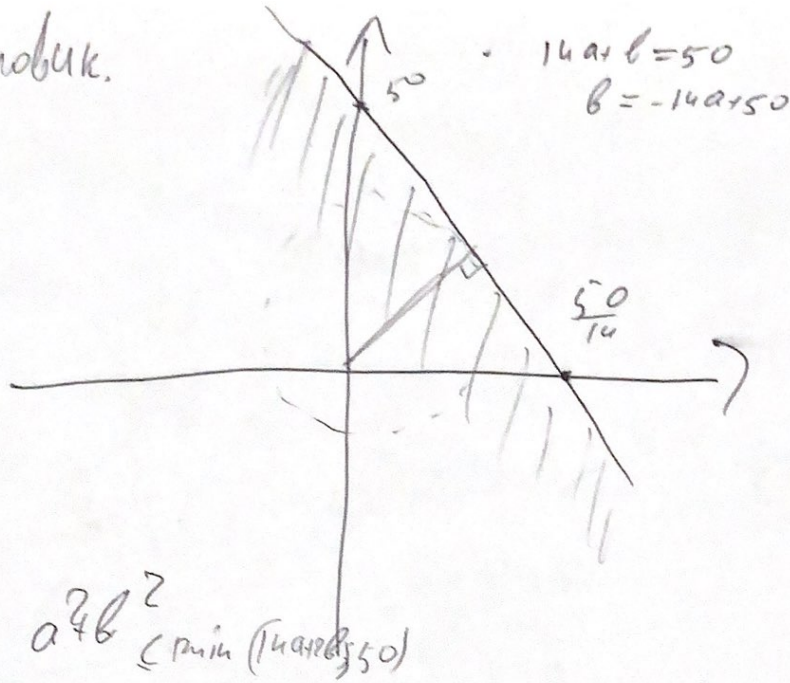 новик.
14a+b=50
b=-14a+50
50
50/14
a²+b² ≤ min (14a+2b; 50)